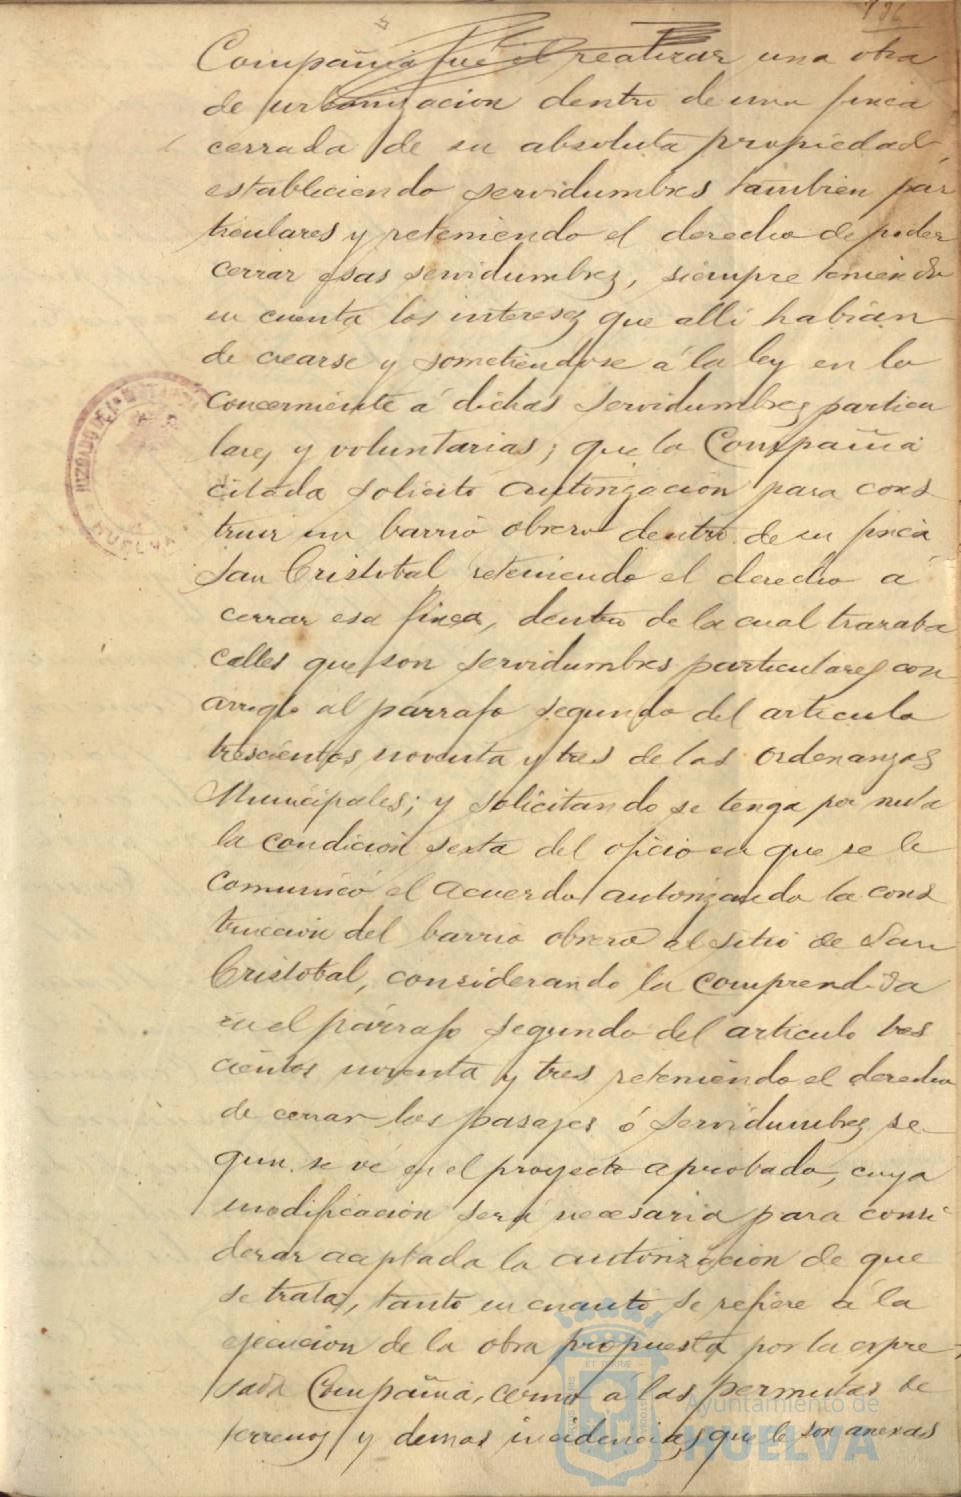 196
Compañia fué el realizar una obra
de urbanizacion dentro de una finca
cerrada de su absoluta propiedad,
estableciendo servidumbres tambien par
ticulares y reteniendo el derecho de poder
cerrar esas servidumbres, siempre teniendo
en cuenta los intereses que alli habian
de crearse y sometiendose á la ley en lo
concerniente á dichas servidumbres particu
lares y voluntarias; que la Compañia
citada solicitó autorizacion para cons
truir un barrio obrero dentro de su finca
San Cristobal reteniendo el derecho á
cerrar esa finca, dentro de la cual trazaba
calles que son servidumbres particulares con
arreglo al parrafo segundo del articulo
trescientos noventa y tres de las Ordenanzas
Municipales; y solicitando se tenga por nula
la condicion sexta del oficio en que se le
comunicó el acuerdo autorizando la cons
truccion del barrio obrero al sitio de San
Cristobal, considerando la comprendida
en el párrafo segundo del articulo tres
cientos noventa y tres reteniendo el derecho
de cerrar los pasajes ó servidumbres se-
gun se vé en el proyecto aprobado, cuya
modificacion será necesaria para consi
derar aceptada la autorizacion de que
se trata, tanto en cuanto se refiere á la
ejecucion de la obra propuesta por la expre-
sada Compañia, como a las permutas de
terrenos y demas incidencias que le son anexas
JUZGADO DE
HUELVA
Ayuntamiento de
HUELVA